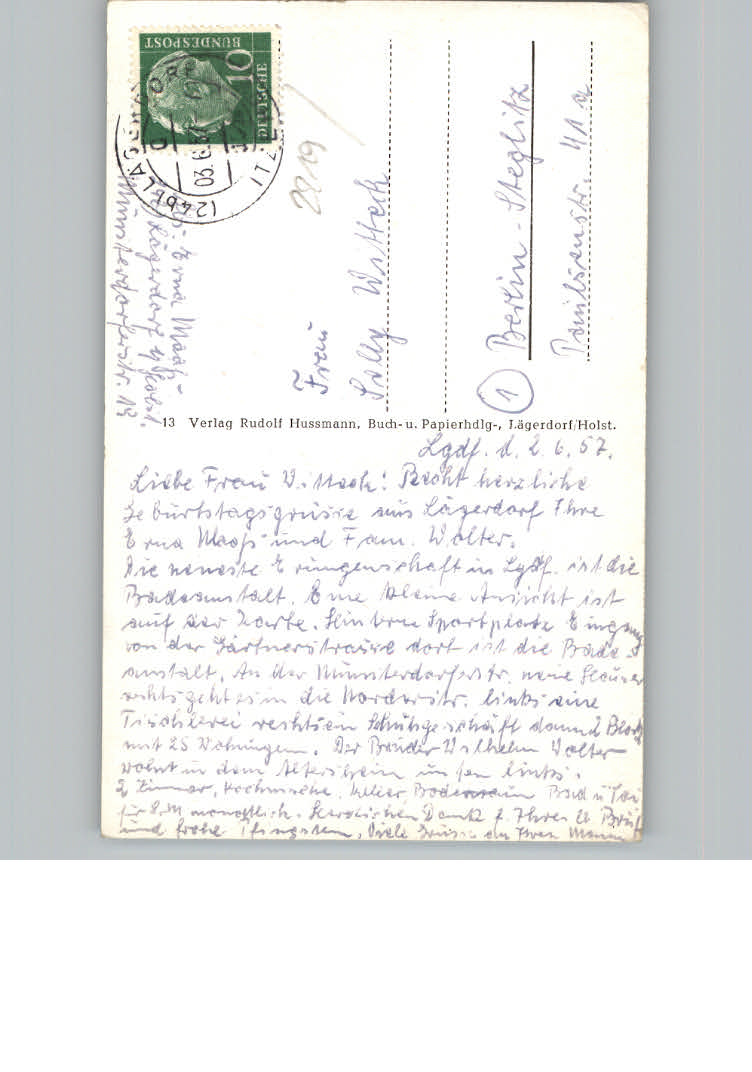 DEUTSCHE
BUNDESPOST
10
(24b) LÄGERDORF
03.6.57
Erna Maaß
Lägerdorf
Münsterdorferstr. 13
2819
Frau
Wittack
(1) Berlin-Steglitz
Paulsenstr. 41a
13 Verlag Rudolf Hussmann, Buch- u. Papierhdlg-, Lägerdorf/Holst.
Lgdf. d. 2.6.57.
Liebe Frau Wittack! Recht herzliche
Geburtstagsgrüsse aus Lägerdorf Ihre
Erna Maaß und Fam. Wolter.
Die neueste Erungenschaft in Lgdf. ist die
Badeanstalt. Eine kleine Ansicht ist
auf der Karte. Hinterm Sportplatz Eingang
von der Gärtnerstrasse dort ist die Bade
anstalt. An der Münsterdorferstr. neue Häuser
rechts geht es in die Norderstr. links eine
Tischlerei rechts ein Schuhgeschäft dann 2 Block
mit 25 Wohnungen. Der Bruder Wilhelm Wolter
wohnt in dem Altersheim unten links.
2 Zimmer, Kochnische, Keller Bad u.
für 8.M monatlich. Herzlichen Dank f. Ihren lb. Brief
und frohe Pfingsten, Viele Grüsse an Ihren Mann